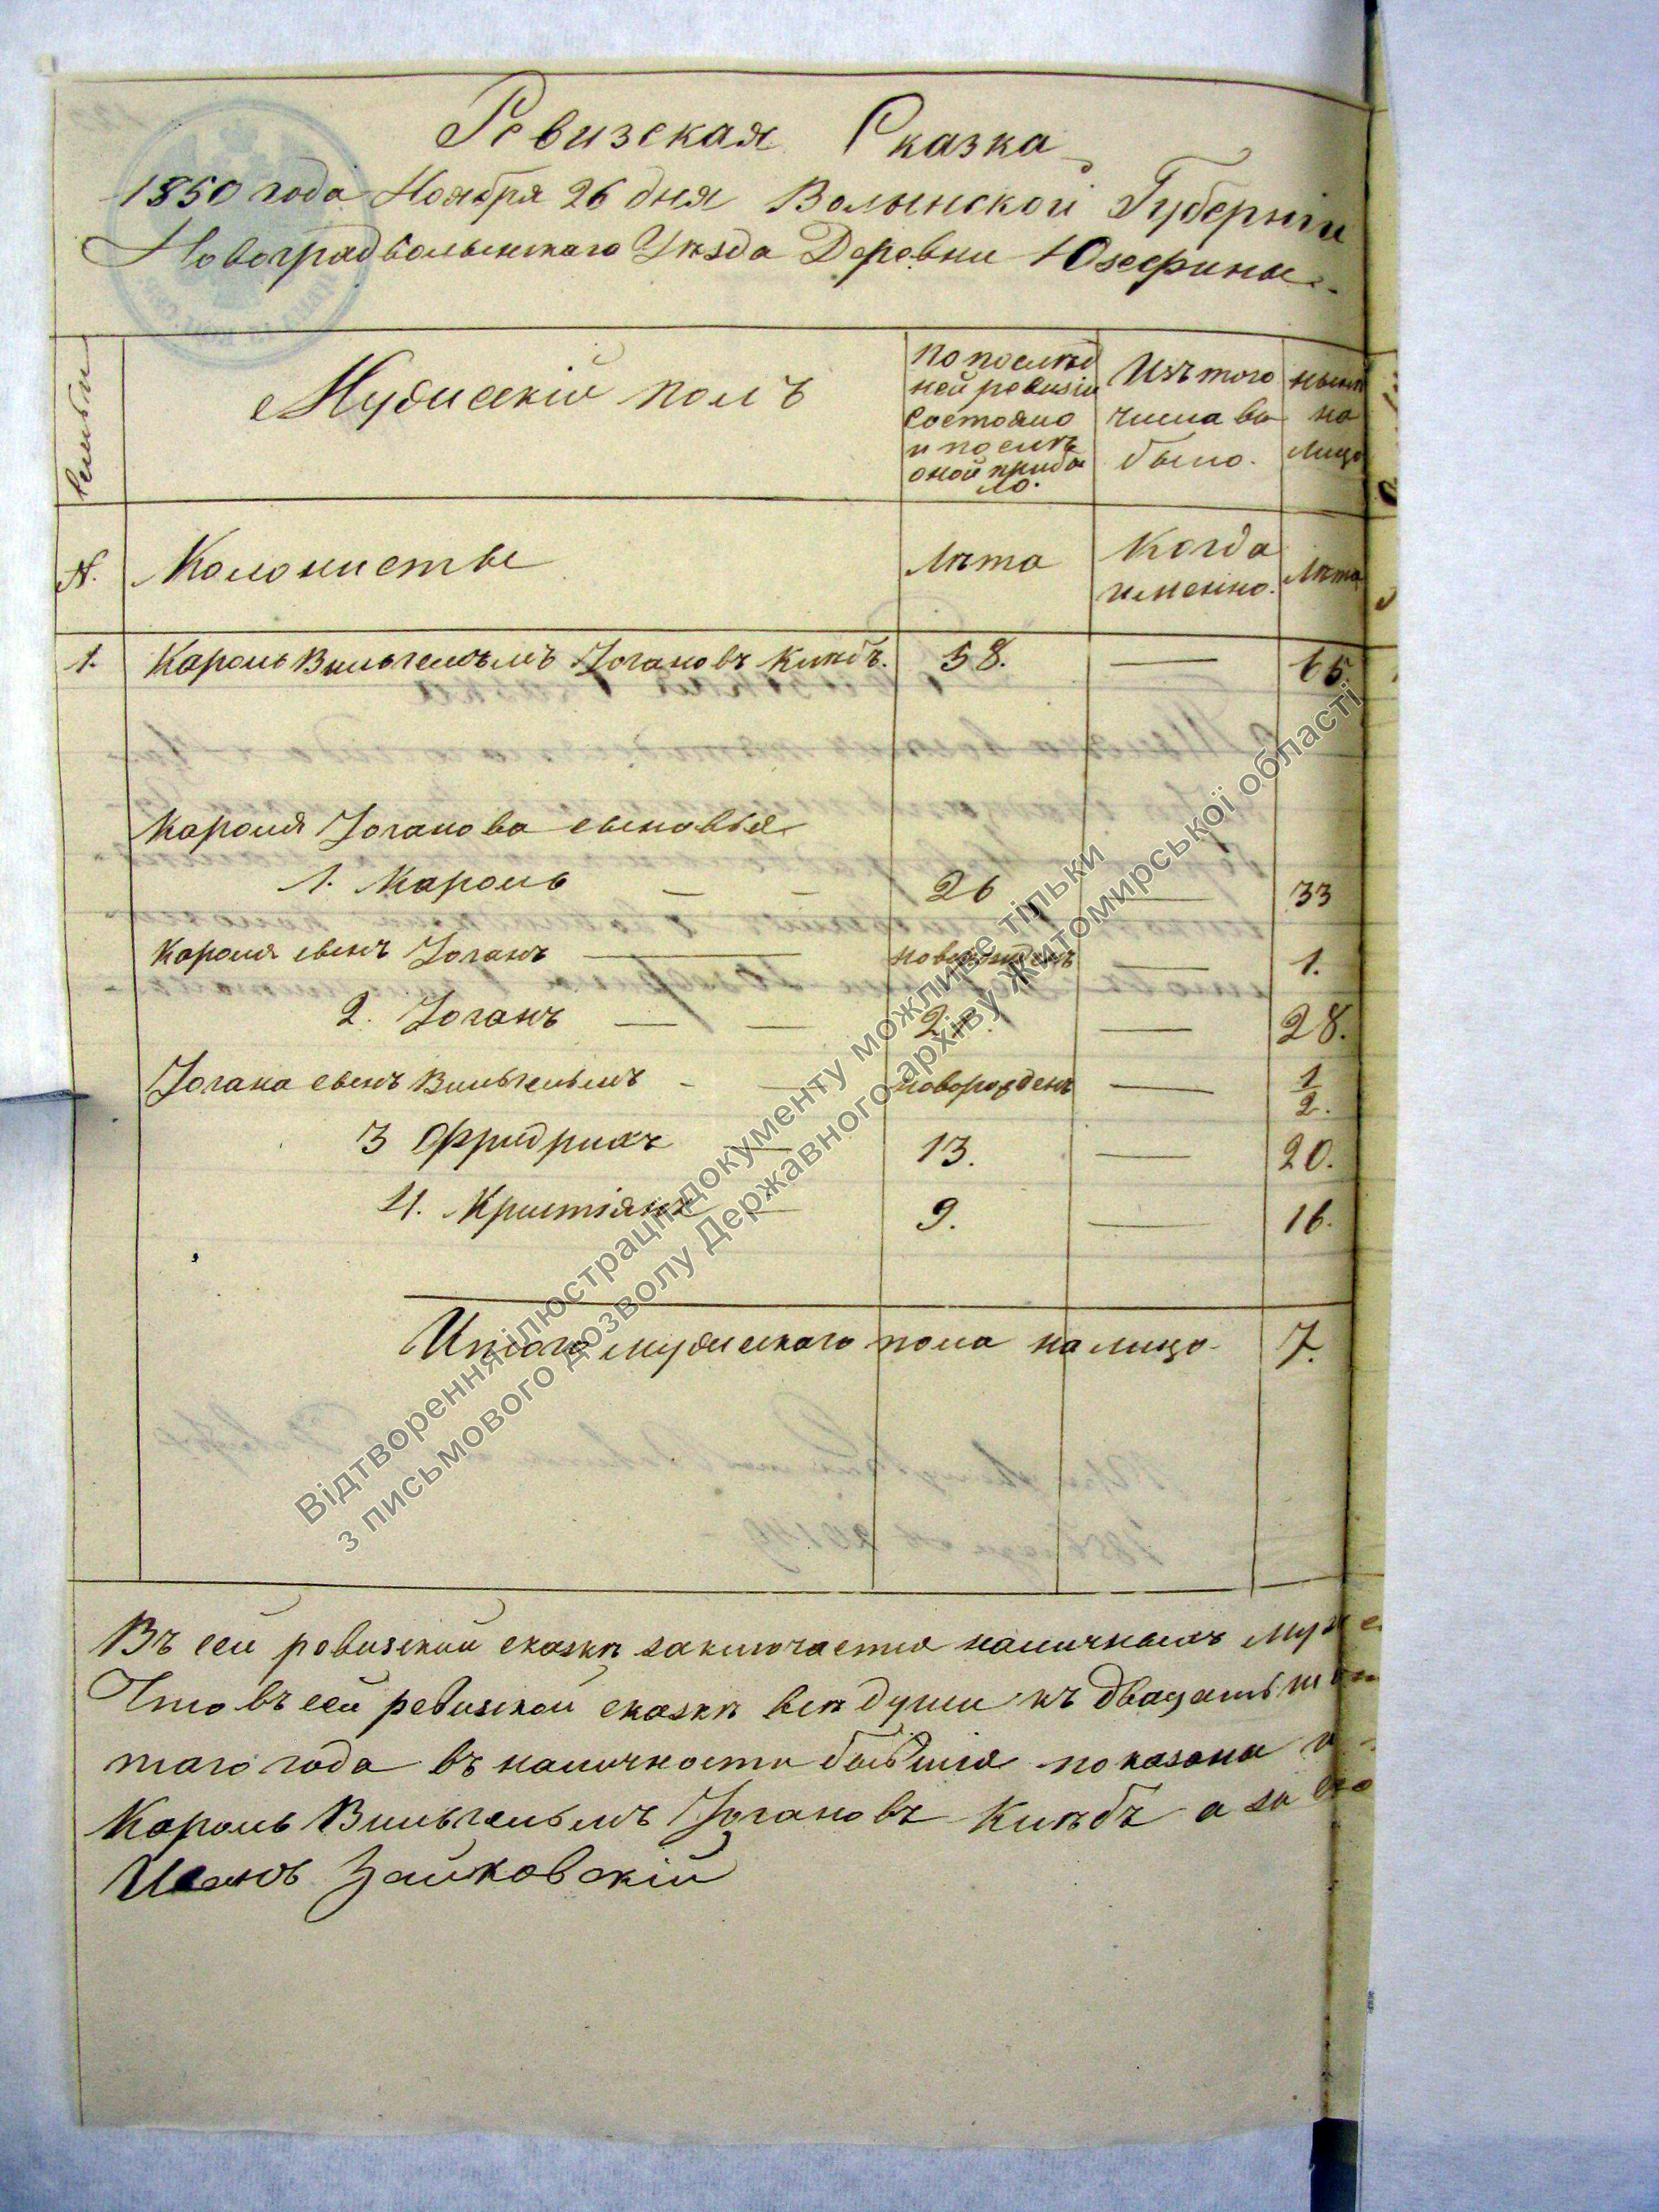 Ревизская Сказка
1850 года Ноября 26 дня Волынской Губерніи
Новоградволынскаго Уѣзда Деревни Юзефины
Семьи
Мужескій полъ
По послѣд
ней ревизіи
состояло
и послѣ
оной прибы
ло.
Изъ того
числа вы
было.
нынѣ
на
лицо
№.
Колонисты
Лѣта
Когда
именно.
Лѣта
1. Кароль Вильгельмъ Іогановъ Кинбъ. 58. — 65.
Кароля Іоганова сыновья
1. Кароль — — 26 — 33
Кароля сынъ Іоганъ — новорожденъ — 1.
2. Іоганъ — — 21. — 28.
Іогана сынъ Вильгельмъ - — новорожденъ — 1/2.
3 Фридрихъ — 13. — 20.
4. Христіянъ — 9. — 16.
Итого мужескаго пола на лицо 7.
Въ сей ревизской сказкѣ заключается наличныхъ
Что въ сей ревизской сказкѣ всѣ души къ двадцать
таго года въ наличности бывшія показаны
Кароль Вильгельмъ Іогановъ Кинбъ а за его
Иванъ Зайковскій
Відтворення ілюстрації документу можливе тільки
з письмового дозволу Державного архіву Житомирської області